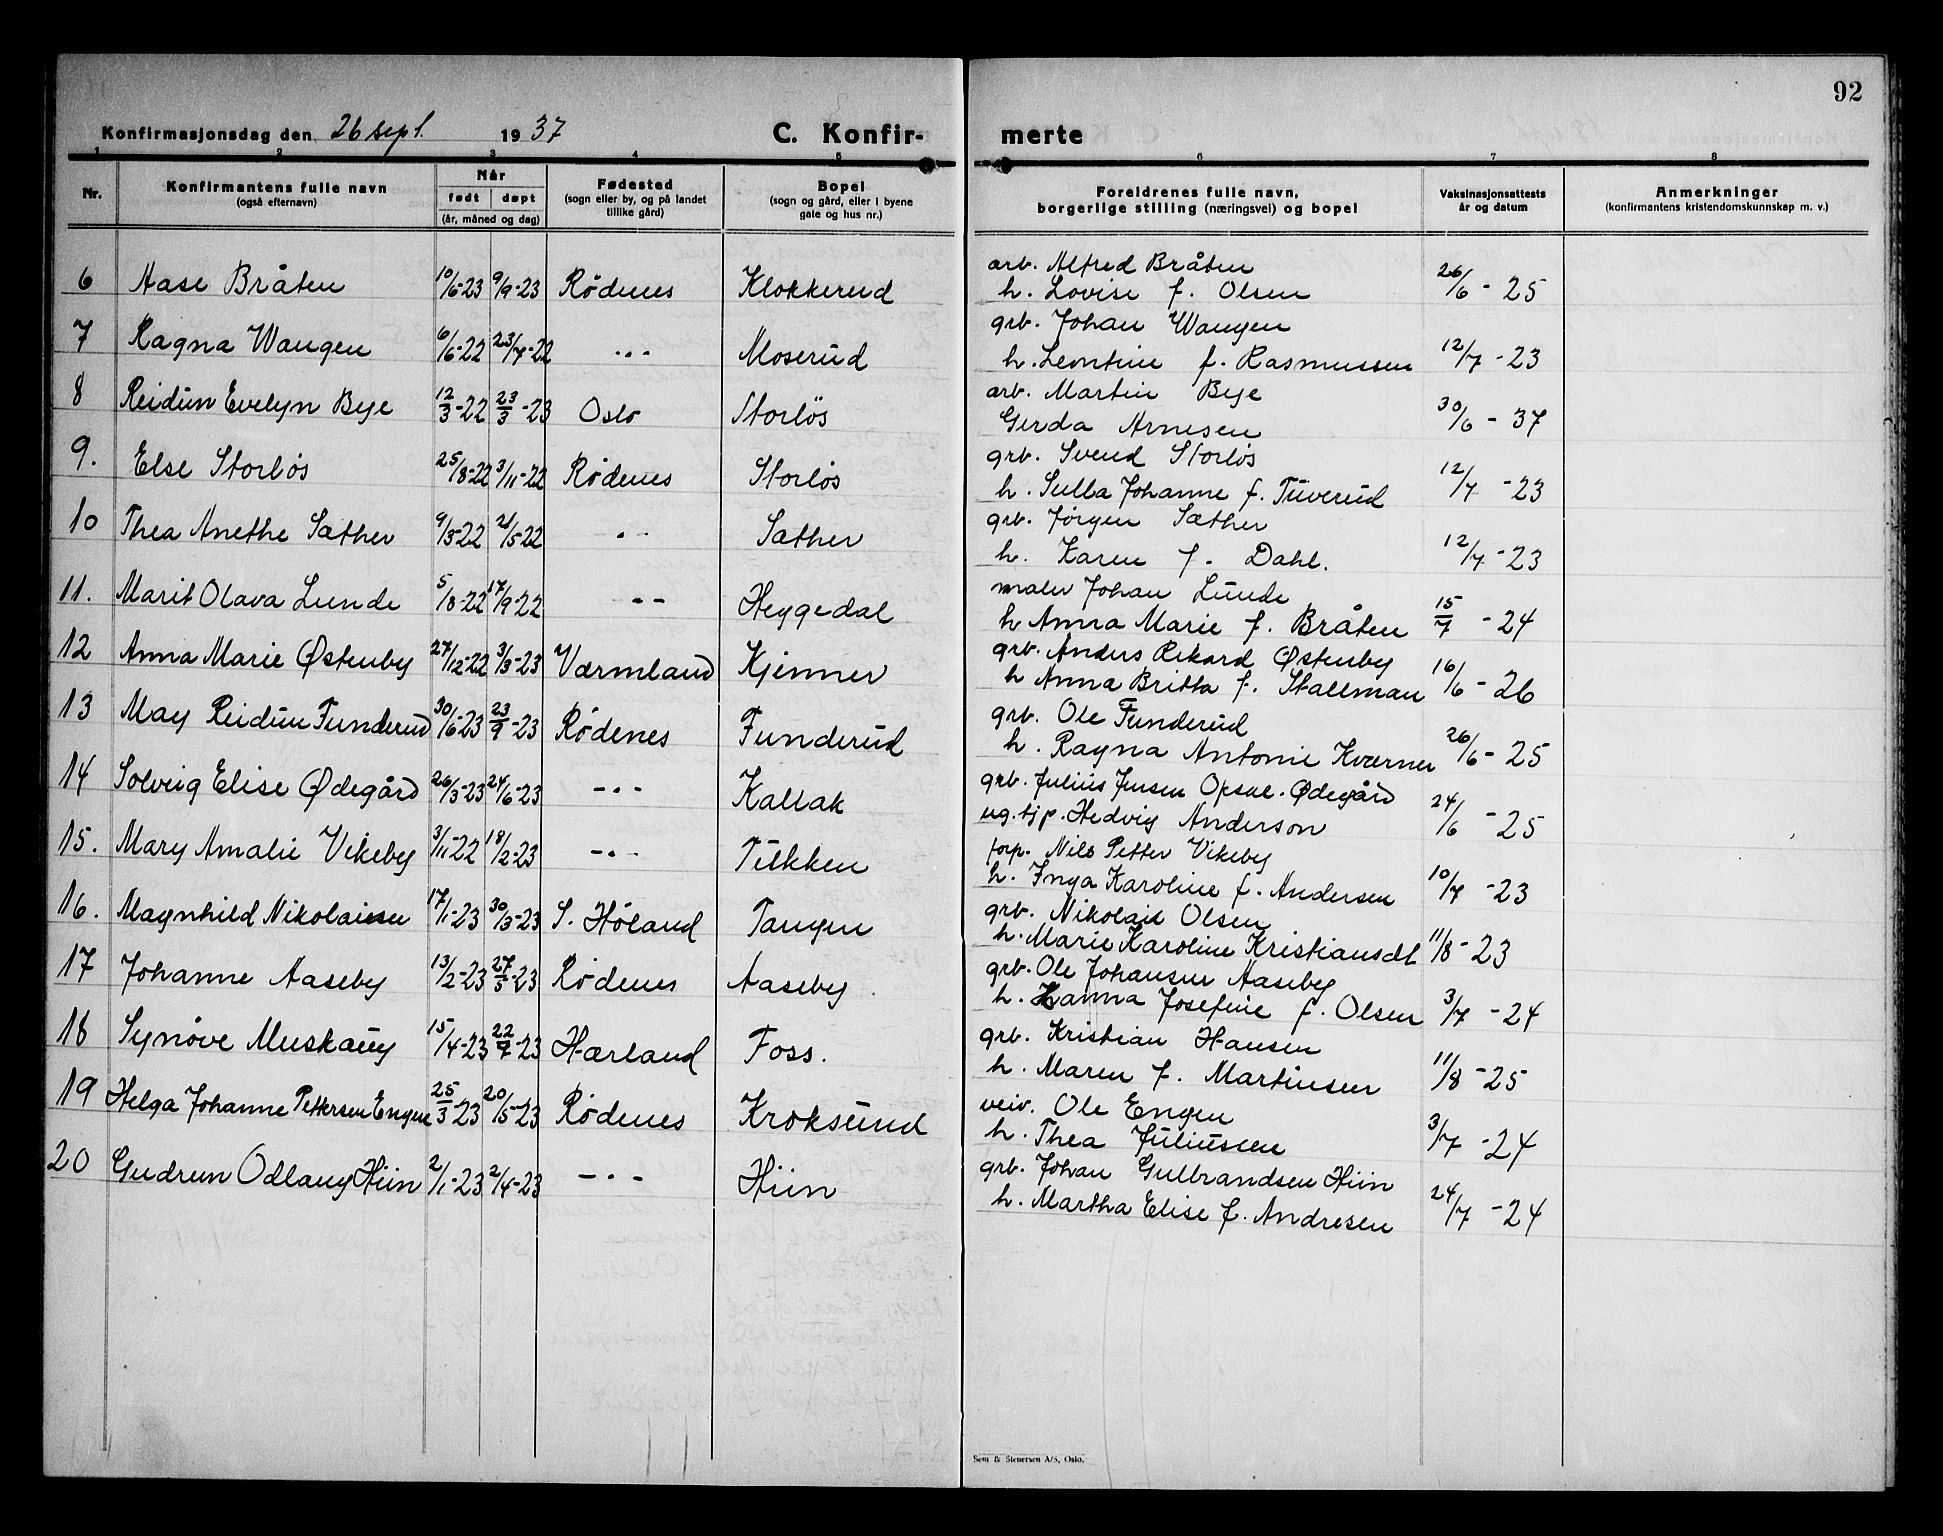 92
Konfirmasjonsdag den 26 sept. 1937 C. Konfir- merte
1 2 3 4 5 6 7 8
Nr. Konfirmantens fulle navn (også efternavn) Når født døpt (år, måned og dag) Fødested (sogn eller by, og på landet tillike gård) Bopel (sogn og gård, eller i byene gate og hus nr.) Foreldrenes fulle navn, borgerlige stilling (næringsvei) og bopel Vaksinasjonsattests år og datum Anmerkninger (konfirmantens kristendomskunnskap m. v.)
arb. Alfred Bråten
6 Aase Bråten 10/6-23 9/9-23 Rødenes Klokkerud h. Lovise f. Olsen 26/6 - 25
grb. Johan Wangen
7 Ragna Wangen 6/6-22 23/7-22 -"- Moserud h. Leontine f. Rasmussen 12/7 - 23
arb. Martin Bye
8 Reidun Evelyn Bye 12/3-22 23/3-23 Oslo Storløs Gerda Arnesen 30/6 - 37
grb. Svend Storløs
9. Else Storløs 25/8-22 3/11-22 Rødenes Storløs h. Sulla Johanne f. Tuverud 12/7 - 23
grb. Jørgen Sæther
10 Thea Anethe Sæther 9/3-22 21/5-22 -"- Sæther h. Karen f. Dahl. 12/7 - 23
maler Johan Lunde
11. Marit Olava Lunde 5/8-22 17/9-22 -"- Heggedal h Anna Marie f. Bråten 15/7 - 24
grb. Anders Rikard Østenby
12 Anna Marie Østenby 27/12-22 3/3-23 Værmland Kjenner h Anna Britta f. Stallman 16/6 - 26
grb. Ole Funderud
13 May Reidun Funderud 30/6-23 23/9-23 Rødenes Funderud h. Ragna Antonie Kværner 26/6 - 25
grb. Julius Jensen Opsal-Ødegård
14 Solveig Elise Ødegård 26/3-23 24/6-23 -"- Kallak ug. tjp. Hedvig Anderson 24/6 - 25
forp. Nils Petter Vikeby
15. Mary Amalie Vikeby 3/11-22 18/2-23 -"- Tukken h. Inga Karoline f. Andersen 10/7 - 23
grb. Nikolai Olsen
16. Magnhild Nikolaisen 17/1-23 30/3-23 S. Høland Tangen h. Marie Karoline Kristiansdt 11/8 - 23
grb. Ole Johansen Aaseby
17 Johanne Aaseby 13/2-23 27/5-23 Rødenes Aaseby h. Hanna Josefine f. Olsen 3/7 - 24
grb. Kristian Hansen
18 Synøve Muskaug 15/4-23 22/7-23 Hærland Foss. h. Maren f. Martinsen 11/8 - 25
veiv. Ole Engen
19 Helga Johanne Pettersen Engen 25/3-23 20/5-23 Rødenes Kroksund h. Thea Juliussen 3/7 - 24
grb. Johan Gulbrandsen Hiin
20 Gudrun Odlaug Hiin 2/1-23 2/4-23 -"- Hiin h. Martha Elise f. Andresen 24/7 - 24
Sem & Stenersen A/S, Oslo.